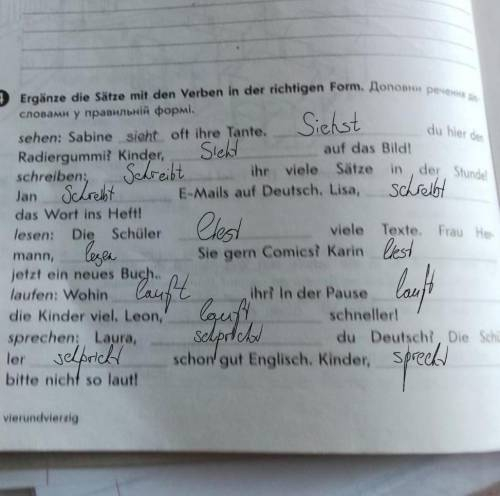 4 Ergänze die Sätze mit den Verben in der richtigen Form. Доповни речення діє-
словами у правильній формі.
sehen: Sabine sieht oft ihre Tante. Siehst du hier den
Radiergummi? Kinder, Sieht auf das Bild!
schreiben: Schreibt ihr viele Sätze in der Stunde?
Jan Schreibt E-Mails auf Deutsch. Lisa, schreibt
das Wort ins Heft!
lesen: Die Schüler lest viele Texte. Frau Her-
mann, lesen Sie gern Comics? Karin liest
jetzt ein neues Buch.
laufen: Wohin lauft ihr? In der Pause lauft
die Kinder viel. Leon, lauft schneller!
sprechen: Laura, schpricht du Deutsch? Die Schü-
ler schpricht schon gut Englisch. Kinder, sprecht
bitte nicht so laut!
vierundvierzig